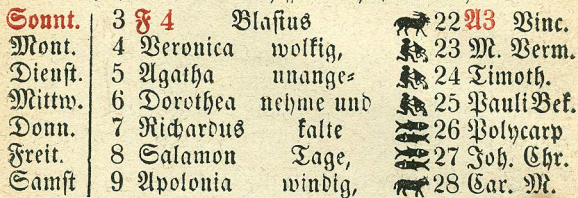 Sonnt. 3 F 4 Blasius 22 A3 Vinc.
Mont. 4 Veronica wolkig, 23 M. Verm.
Dienst. 5 Agatha unange- 24 Timoth.
Mittw. 6 Dorothea nehme und 25 Pauli Bek.
Donn. 7 Richardus kalte 26 Polycarp
Freit. 8 Salamon Tage, 27 Joh. Chr.
Samst 9 Apolonia windig, 28 Car. M.